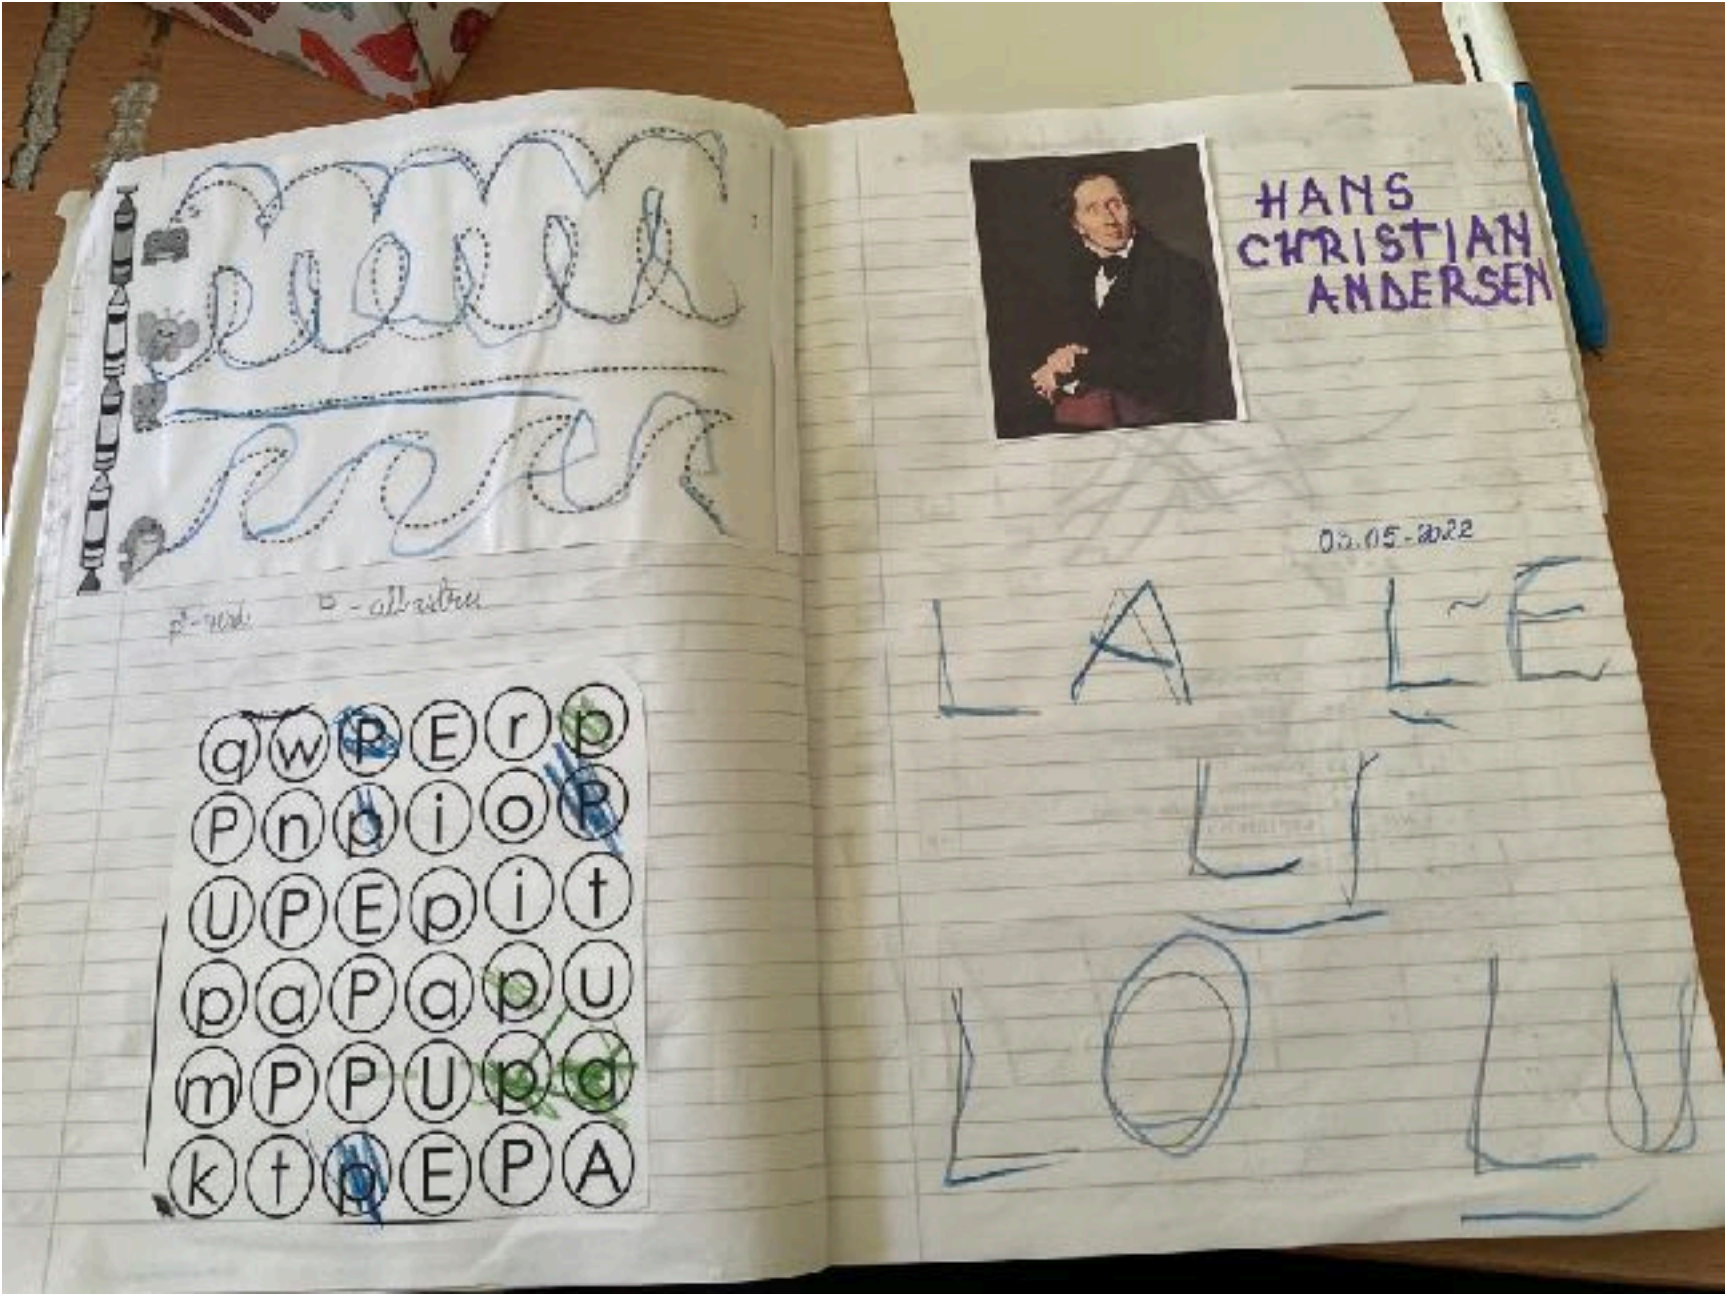 p-verde P-albastru
q w P E r p
P n p i o P
U P E p i t
p a P a p u
m P P U p a
k t p E P A
HANS
CHRISTIAN
ANDERSEN
03.05.2022
LA LE
LI
LO LU